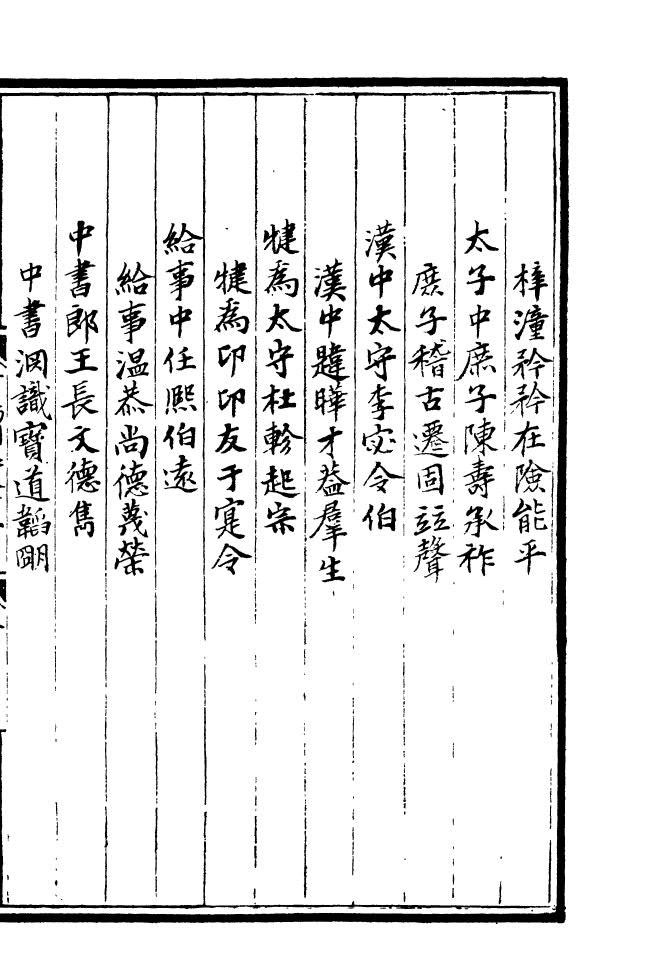 梓潼矜矜在險能平
太子中庶子陳壽承祚
庶子稽古遷固竝聲
漢中太守李宓令伯
漢中韙曄才葢羣生
犍爲太守杜軫起宗
犍爲卬卬友于寔令
給事中任熙伯遠
給事温恭尚德蔑榮
中書郎王長文德雋
中書洞識寶道韜明